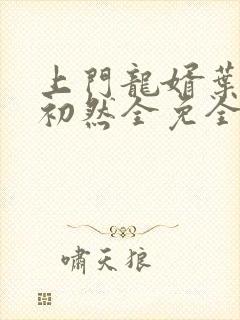 上門龍婿葉
初然全免全
嘯天狼